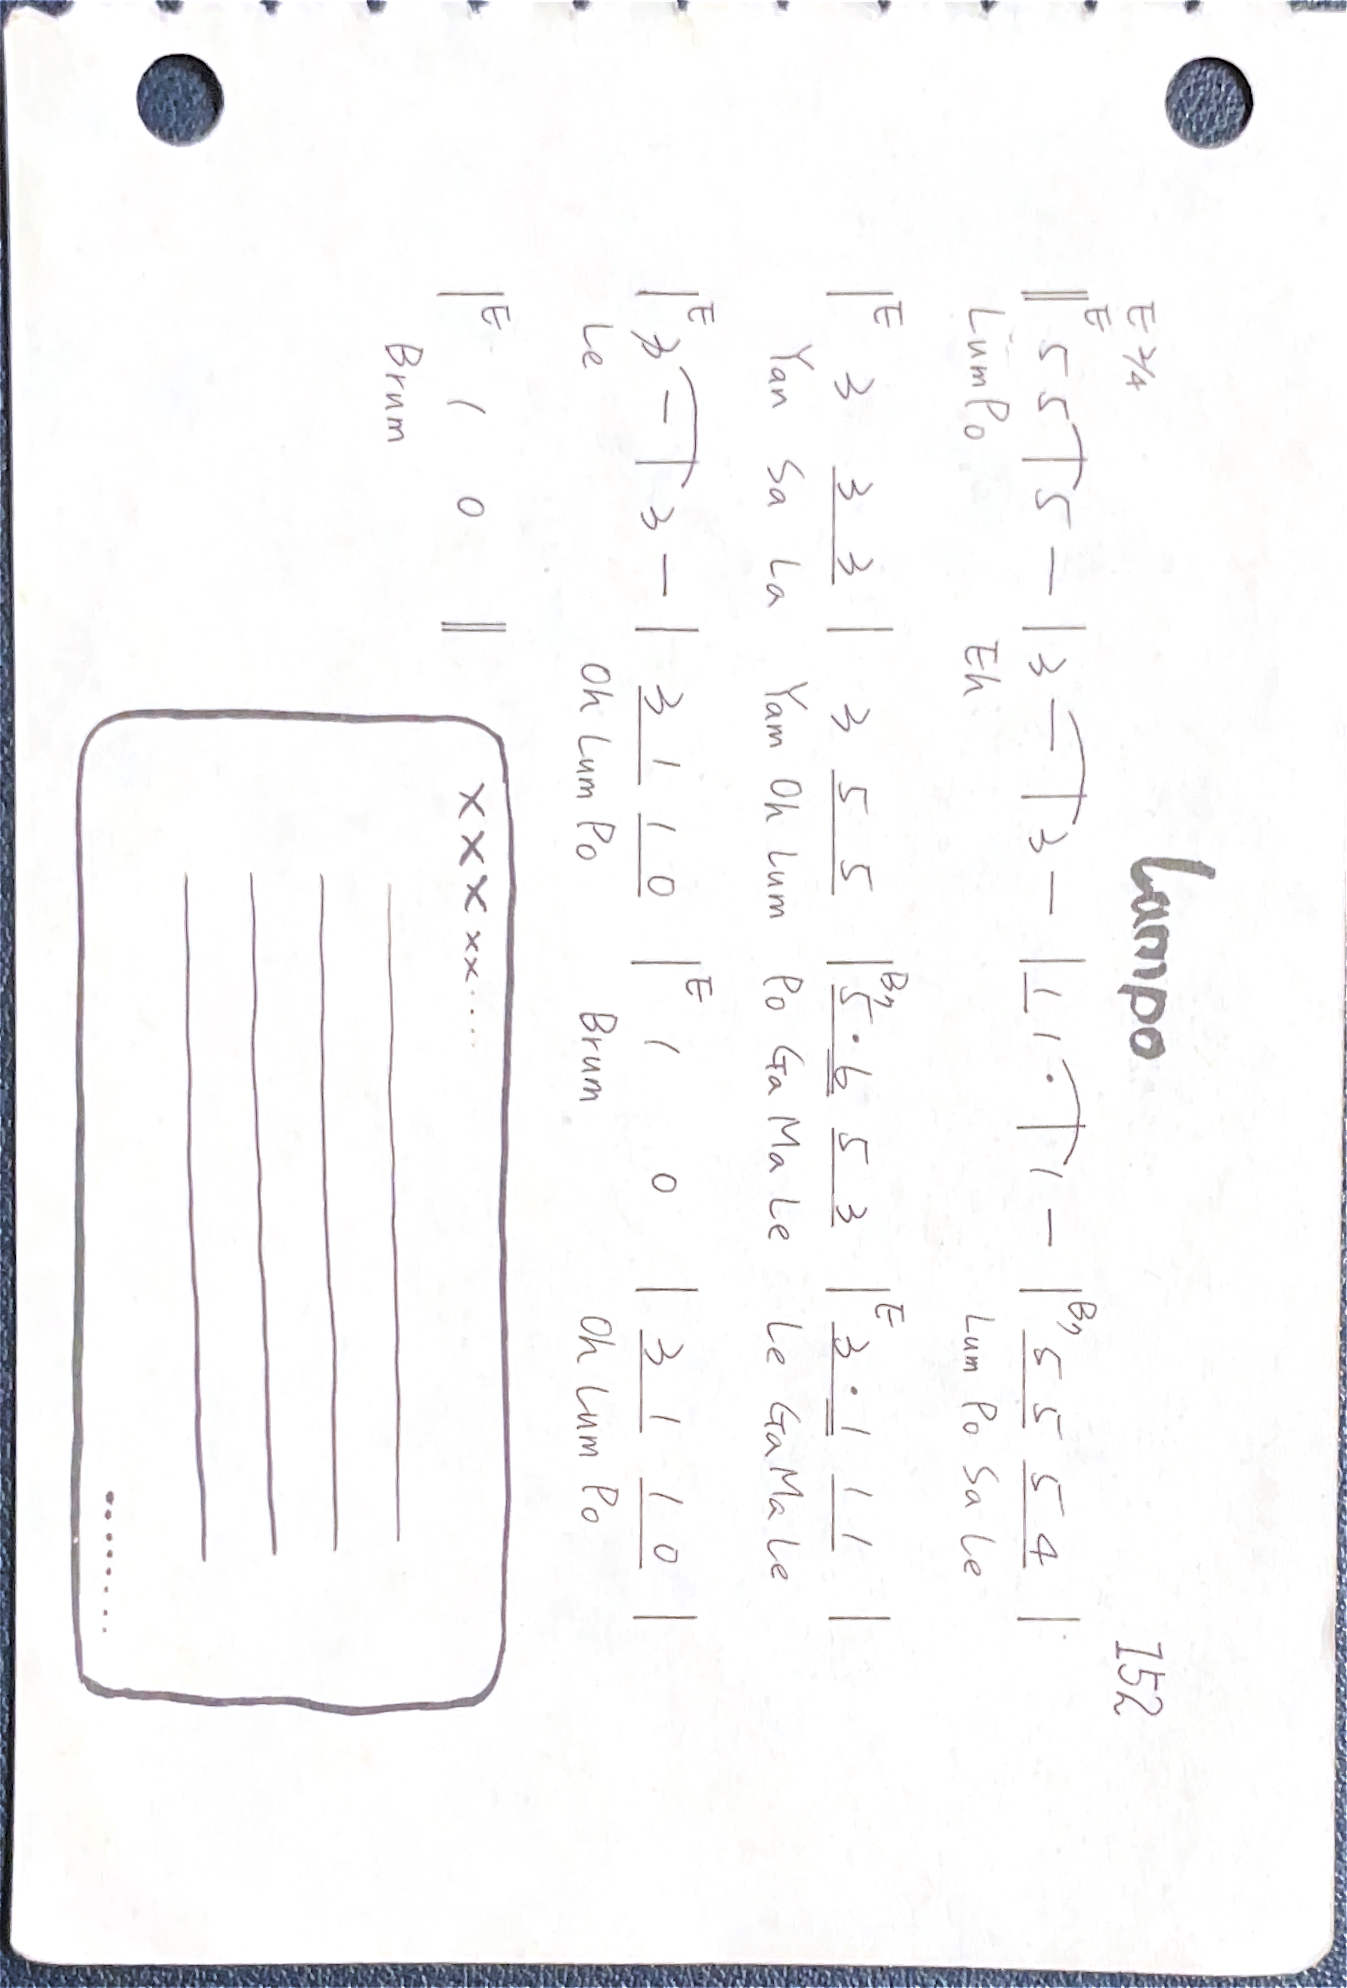 Lampo
152
E 2/4
E B7
‖ 5 5 | 5 — | 3 — | 3 — | 1 1 · | 1 — | 5 5 5 4 |
Lum Po Eh Lum Po Sa Le
E B7 E
| 3 3 3 | 3 5 5 | 5 · 6 5 3 | 3 · 1 1 1 |
Yan Sa La Yam Oh Lum Po Ga Ma Le Le Ga Ma Le
E E
| 3 — | 3 — | 3 1 1 0 | 1 0 | 3 1 1 0 |
Le Oh Lum Po Brum Oh Lum Po
E
| 1 0 ‖
Brum
x x x x x · · · ·